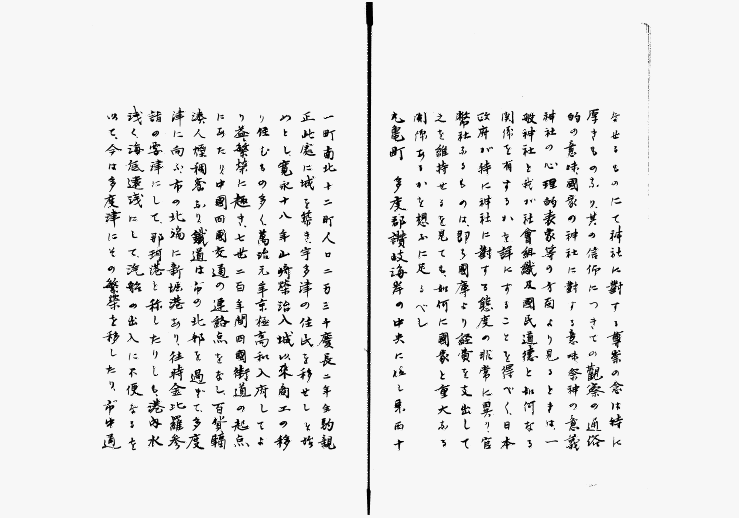 させるものにて神社に對する尊崇の念は特に
厚きものあり其の信仰につきての觀察の通俗
的の意味國家の神社に對する意味祭神の意義
神社の心理的表象等の方面より見るときは、一
般神社と我が社會組織及國民道德と如何なる
關係を有するかを詳にすることを得べく、日本
政府が特に神社に對する態度の非常に異り、官
幣社なるものは、即ち國庫より經費を支出して
之を維持せるを見ても、如何に國家と重大なる
關係あるかを想ふに足るべし
丸亀町 多度郡讃岐海岸の中央に位し東西十
一町南北十二町人口二万三千慶長二年生駒親
正此處に城を築き、宇多津の住民を移せしを始
めとし、寛永十八年山崎榮治入城以來商工の移
り住むもの多く、萬治元年京極高和入府してよ
り益繁榮に趣き、七世二百年間四國街道の起点
にあたり中國四國交通の連絡点をなし、百貨輻
湊人煙稠密なり、鐵道は市の北部を過ぎて、多度
津に向ふ、市の北端に新堀港あり、往時金比羅參
詣の要津にして、那珂港と称したりしも、港内水
浅く海底遠浅にして、汽船の出入に不便なるを
以て、今は多度津にその繁榮を移したり、市中通